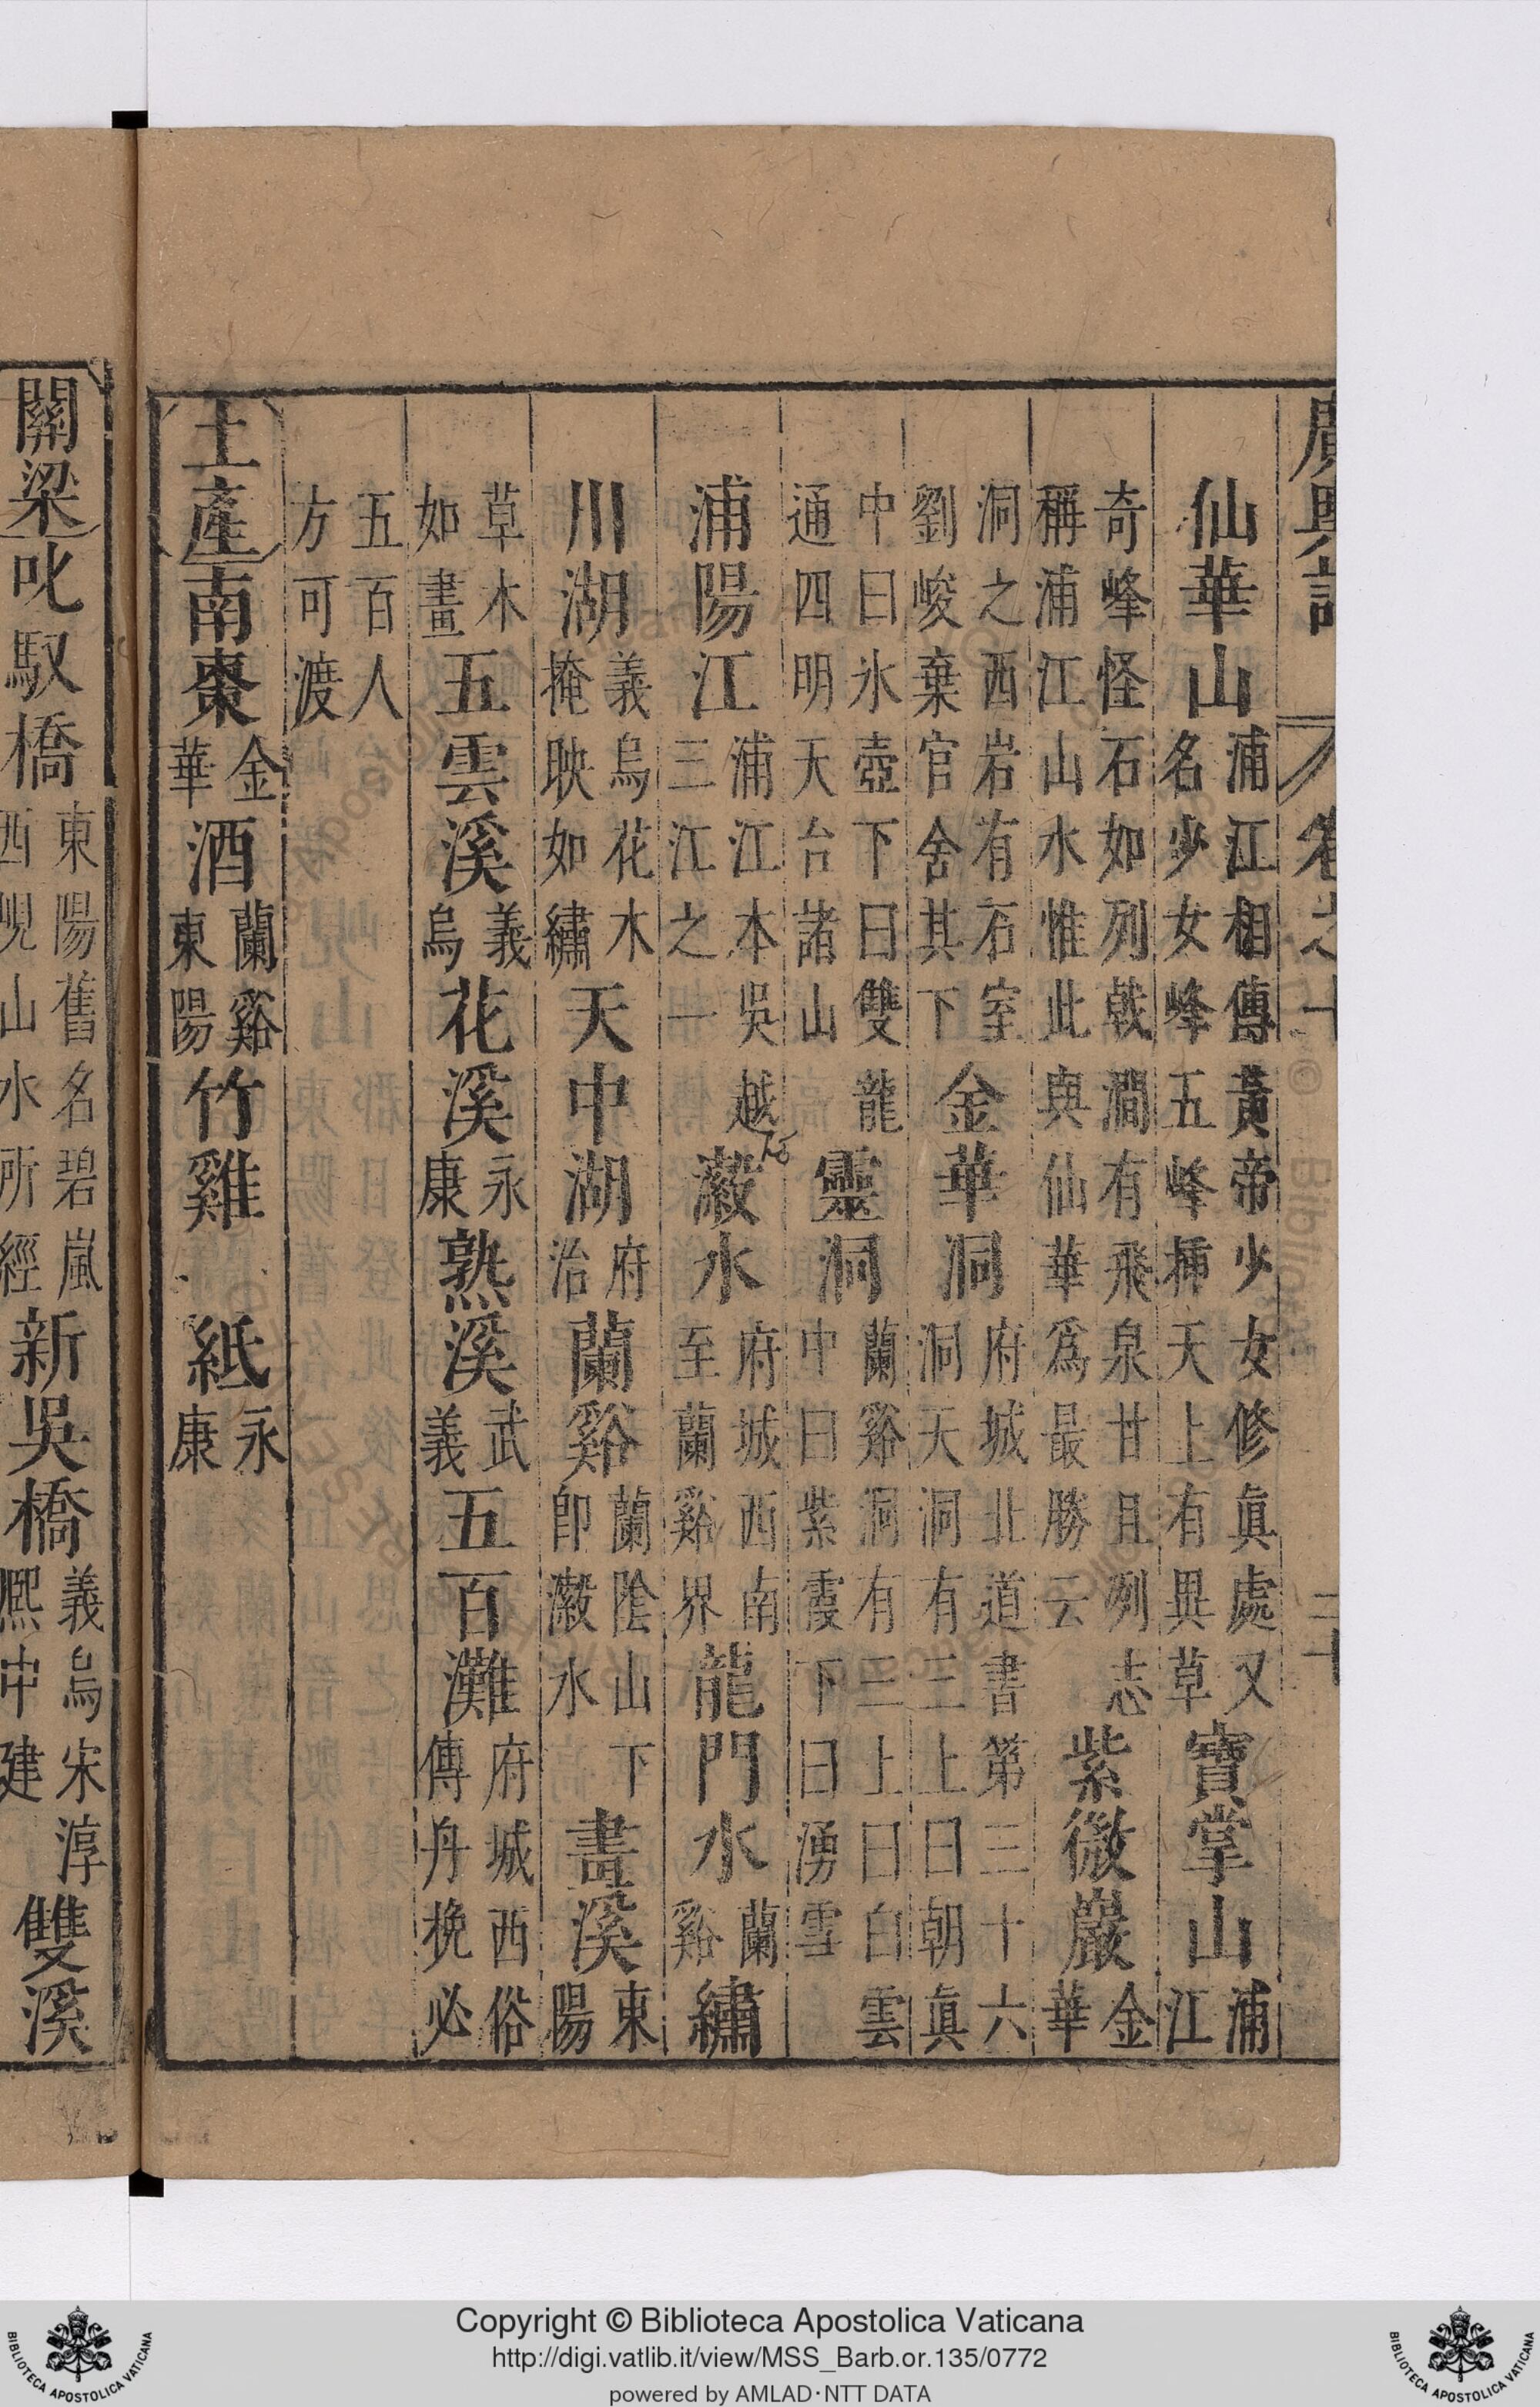 廣輿記 卷之十 二十
仙華山浦江相傳黃帝少女修眞處又名少女峰五峰揷天上有異草寶掌山浦江
奇峰怪石如列戟澗有飛泉甘且列志稱浦江山水惟此與仙華爲最勝云紫微巖金華
洞之西岩有石室劉峻棄官舍其下金華洞府城北道書第三十六洞天洞有三上曰朝眞
中曰氷壺下曰雙龍通四明天台諸山靈洞蘭谿洞有三上曰白雲中曰紫霞下曰湧雪
浦陽江浦江本吳越三江之一瀫水府城西南至蘭谿界龍門水蘭谿繡
川湖義烏花木掩映如繡天中湖府治蘭谿蘭陰山下卽瀫水畵溪東陽
草木如畫五雲溪義烏花溪永康熟溪武義五百灘府城西俗傳丹挽必
五百人方可渡
土產南棗金華酒蘭谿東陽竹雞紙永康
關梁叱馭橋東陽舊名碧嵐西峴山水所經新吳橋義烏宋淳熙中建雙溪
Copyright © Biblioteca Apostolica Vaticana
http://digi.vatlib.it/view/MSS_Barb.or.135/0772
powered by AMLAD·NTT DATA
BIBLIOTECA APOSTOLICA VATICANA
BIBLIOTECA APOSTOLICA VATICANA